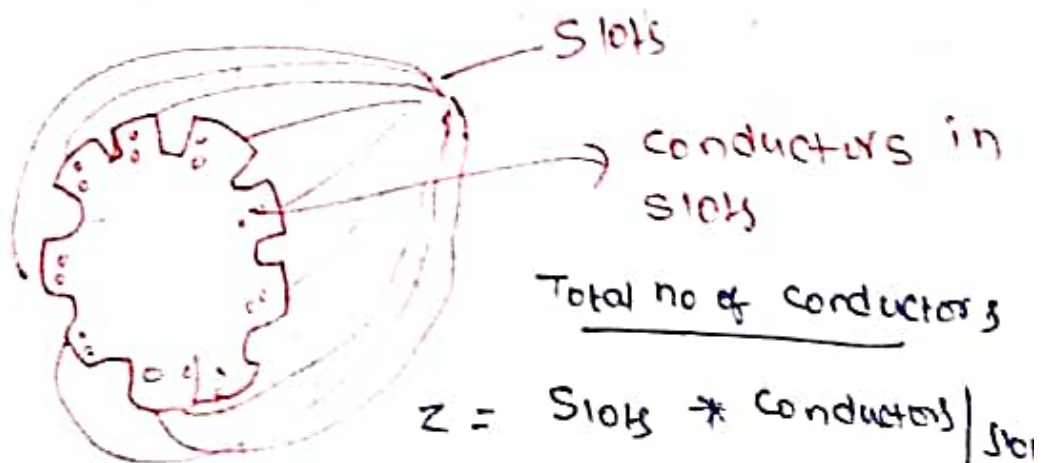 Slots
Conductors in
slots
Total no of conductors
Z = Slots * Conductors|